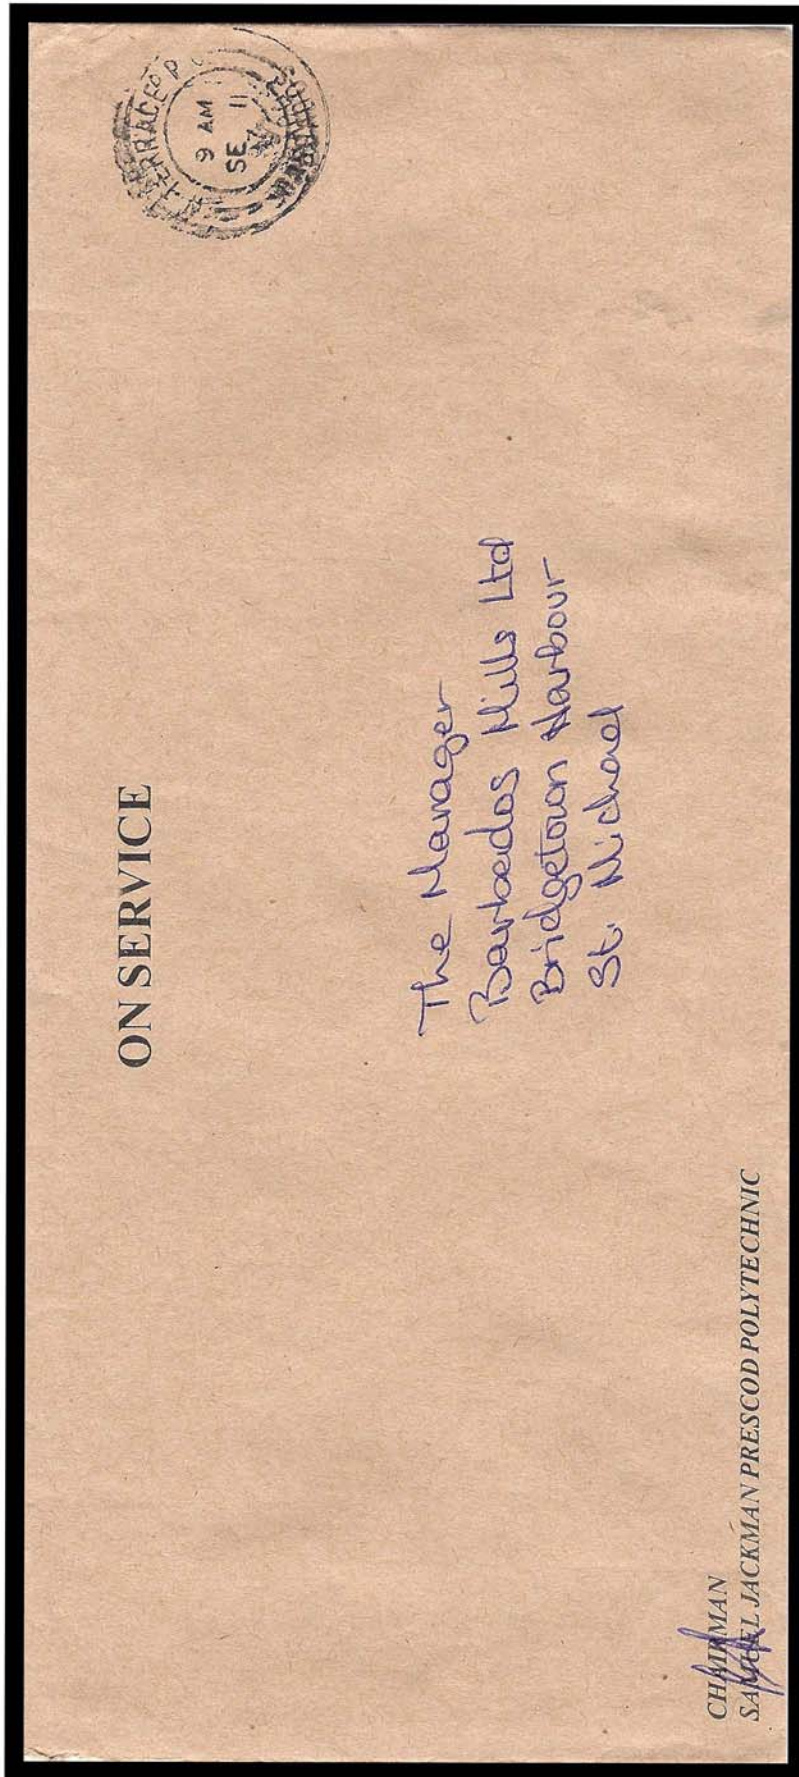 TERRACE P O
9 AM
11
SE
BARBADOS
ON SERVICE
The Manager
Barbados Mills Ltd
Bridgetown Harbour
St. Michael
CHAIRMAN
SAMUEL JACKMAN PRESCOD POLYTECHNIC